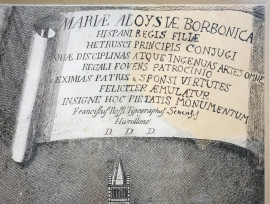 MARIÆ ALOYSIÆ BORBONICÆ
HISPANI REGIS FILIÆ
HETRUSCI PRINCIPIS CONJUGI
QUÆ DISCIPLINAS ATQUE INGENUAS ARTES OMNES
REGALI FOVENS PATROCINIO
EXIMIAS PATRIS & SPONSI VIRTUTES
FELICITER ÆMULATUR
INSIGNE HOC PIETATIS MONUMENTUM
Franciscus Rossi Typographus Senensis
D. D. D.